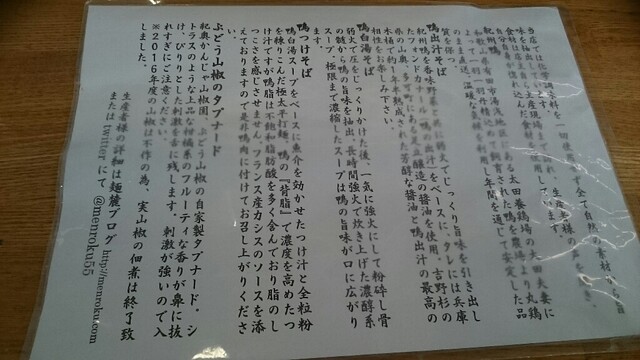 当店では化学調味料を一切使用せず全て自然の素材から旨
紀州鴨
和歌山県有田市湯浅地区にある太田養鶏場の太田夫妻に
よって一羽一羽丹精
質を保
のまま
鴨出汁そば
紀州鴨を香味野菜と共に弱火でじっくり旨味を引き出し
たフォンドカナール（鴨出汁）をベースに、タレには兵庫
県の山奥、
木桶で約1年半熟成された芳醇な醤油と鴨出汁の最高の
相性をお楽しみ下さい。
鴨白湯そば
弱火で圧をじっくりかけた後、一気に強火にして粉砕し骨
の髄から鴨の旨味を抽出。長時間強火で炊き上げた濃厚系
スープ。極限まで濃縮したスープは鴨の旨味が口に広がり
ます。
鴨つけそば
鴨白湯スープをベースに魚介を効かせたつけ汁と全粒粉
を練りこんだ極太平打麺。鴨の『背脂』で濃度を高めたつ
け汁ですが鴨脂は不飽和脂肪酸を多く含んでおり脂のし
つこさを感じさせません。フランス産カシスのソースを添
えておりますので是非鴨肉に付けてお召し上がりくださ
い。
ぶどう山椒のタプナード
紀奥かんじゃ山椒園、ぶどう山椒の自家製タプナード。シ
トラスのような上品な柑橘系のフルーティな香りが鼻に抜
け、ぴりりとした刺激を舌に残します。刺激が強いので入
れすぎにご注意ください。
※2016年度の山椒は不作の為、実山椒の佃煮は終了致
しました。
生産者様の詳細は麺麓ブログ http://menroku.com
またはtwitterにて@menroku55